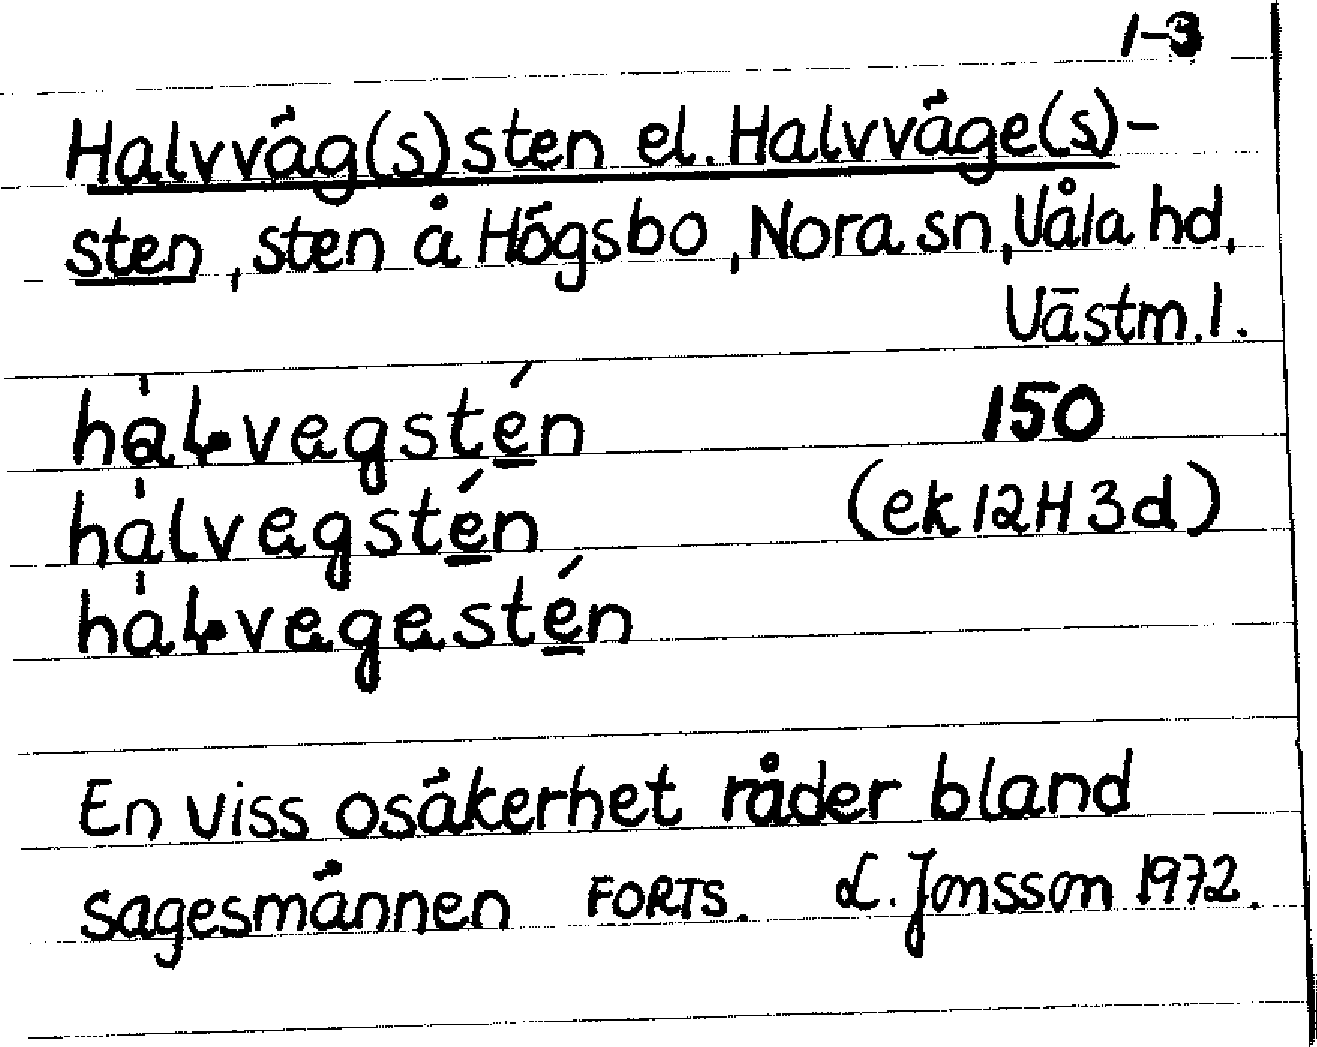 1-3
Halvväg(s)sten el. Halvväge(s)-
sten, sten å Högsbo, Nora sn, Våla hd,
Västm. l.
hàlvegstén 150
hàlvegstén (ek 12H 3d)
hàlvegestén
En viss osäkerhet råder bland
sagesmännen FORTS. L. Jonsson 1972.